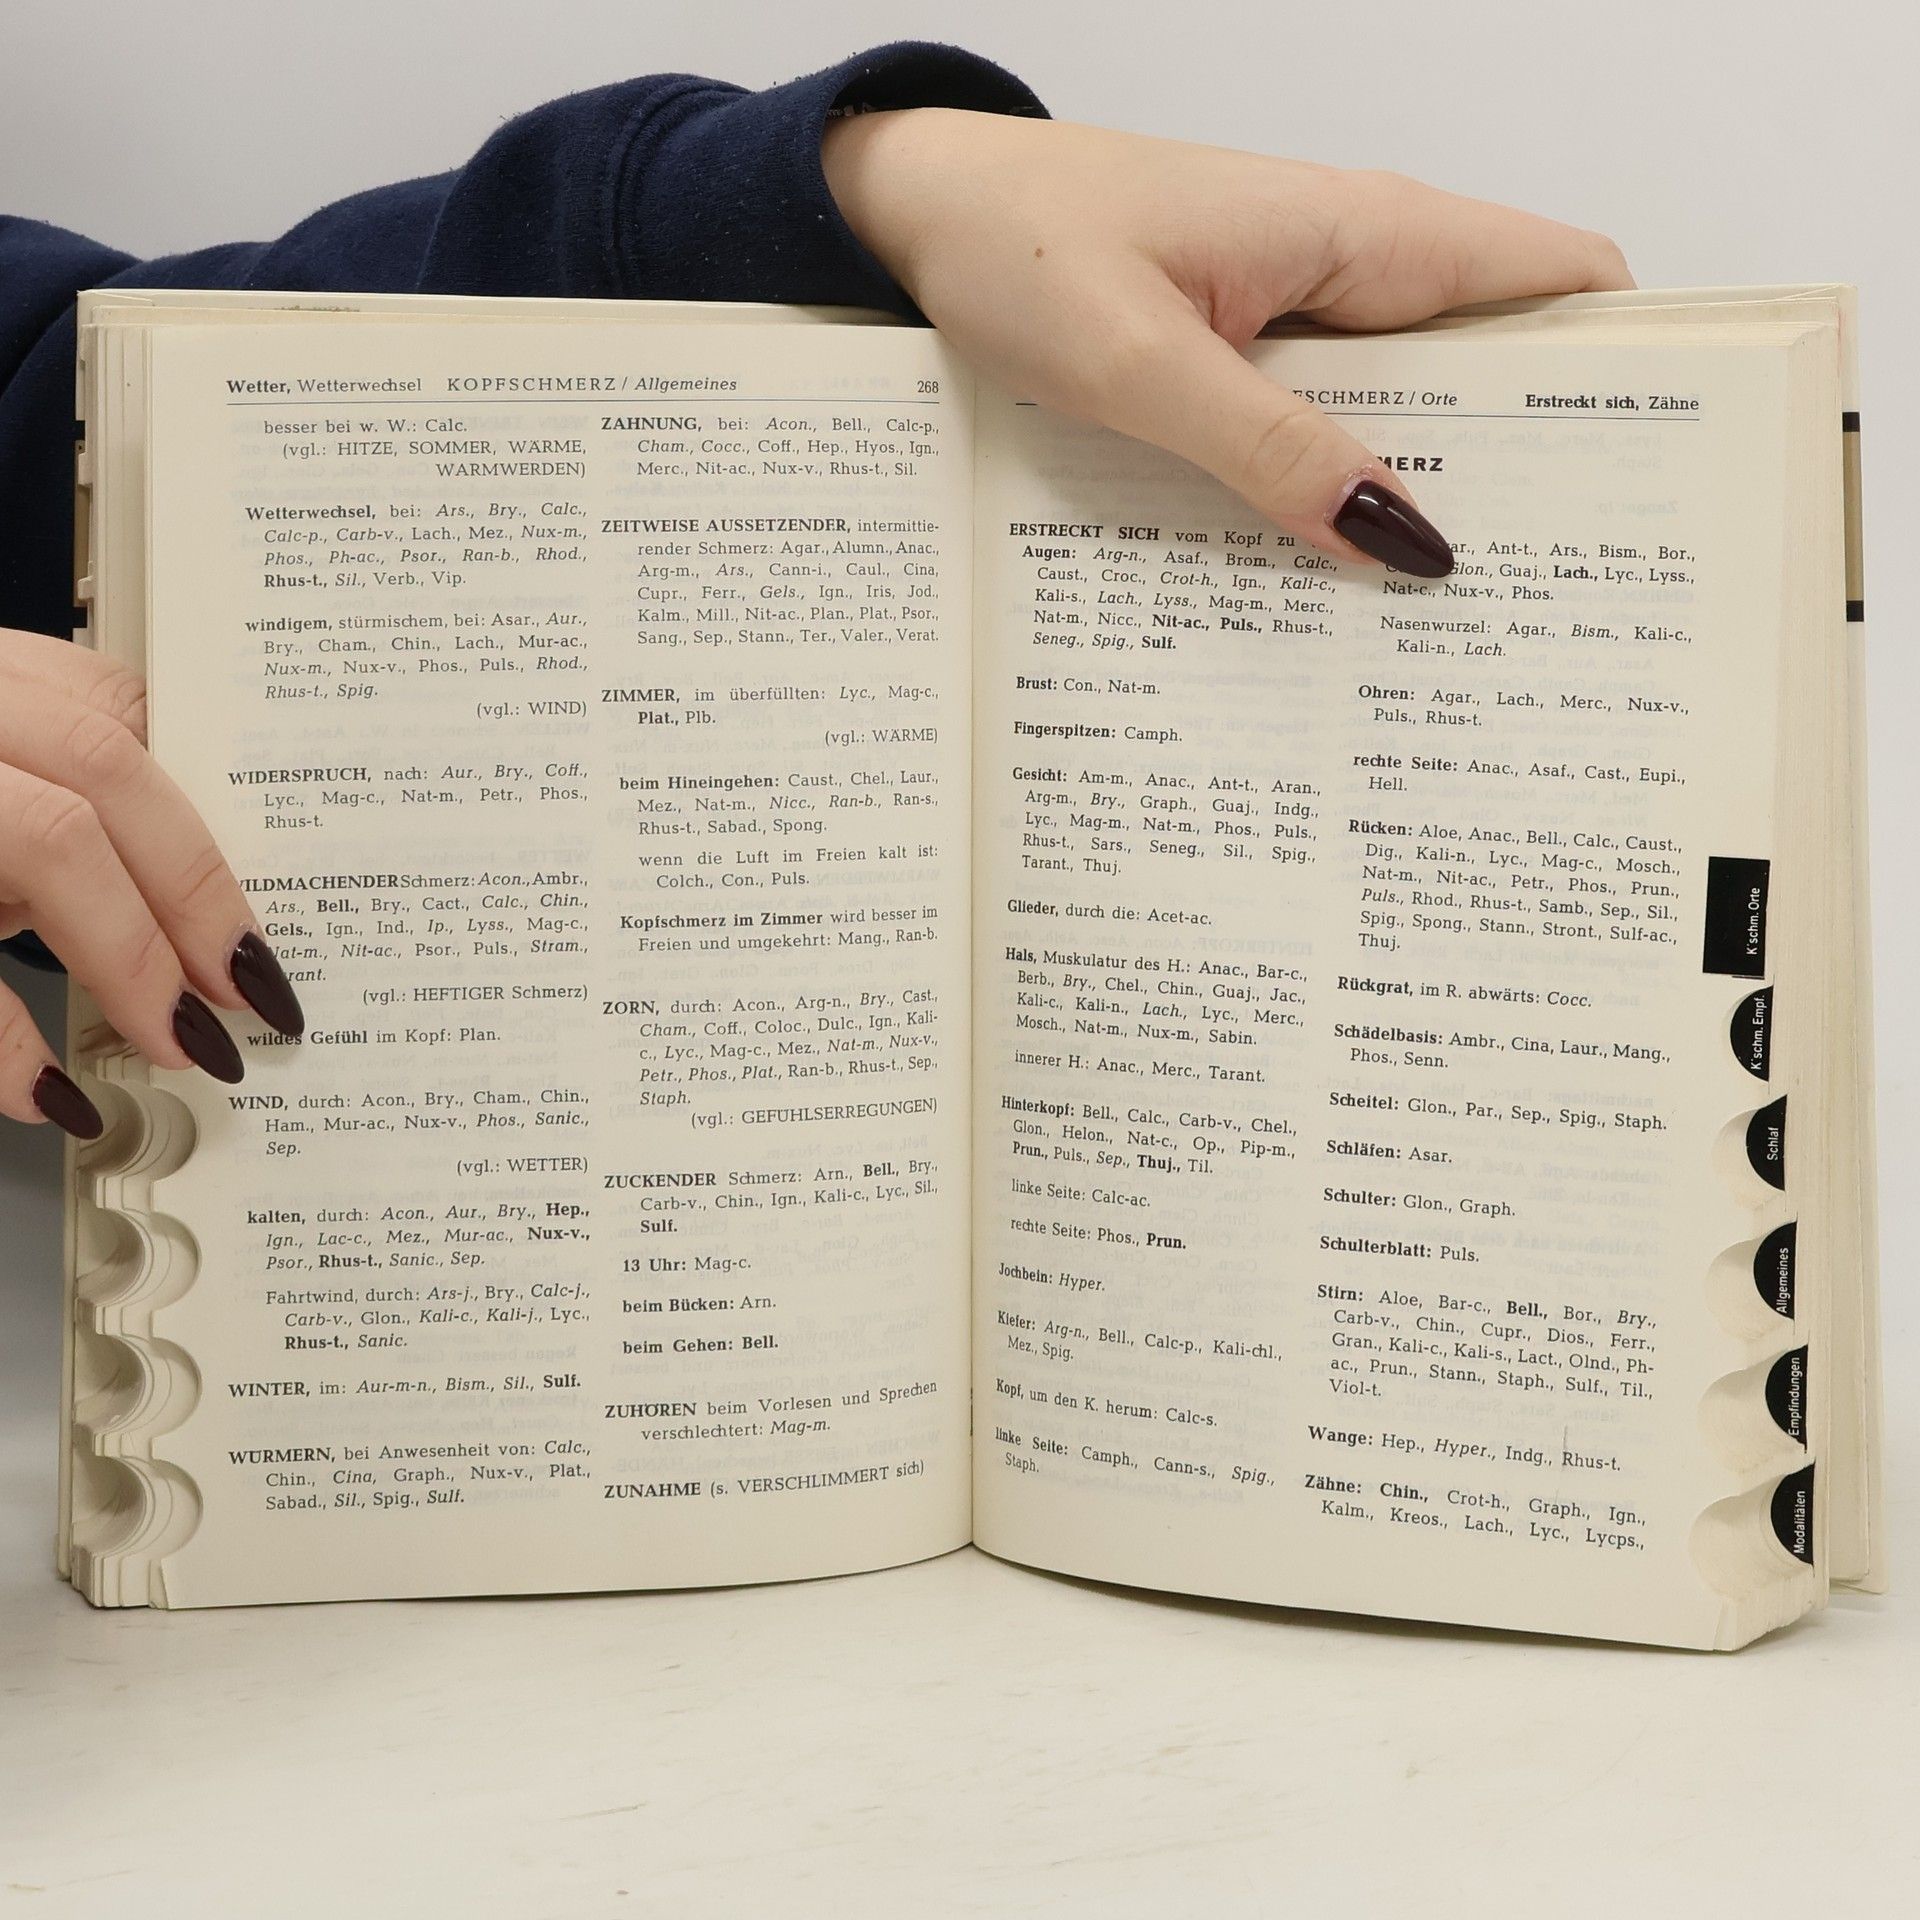 Wetter, Wetterwechsel KOPFSCHMERZ / Allgemeines 268
besser bei w. W.: Calc.
(vgl.: HITZE, SOMMER, WÄRME,
WARMWERDEN)
Wetterwechsel, bei: Ars., Bry., Calc.,
Calc-p., Carb-v., Lach., Mez., Nux-m.,
Phos., Ph-ac., Psor., Ran-b., Rhod.,
Rhus-t., Sil., Verb., Vip.
windigem, stürmischem, bei: Asar., Aur.,
Bry., Cham., Chin., Lach., Mur-ac.,
Nux-m., Nux-v., Phos., Puls., Rhod.,
Rhus-t., Spig.
(vgl.: WIND)
WIDERSPRUCH, nach: Aur., Bry., Coff.,
Lyc., Mag-c., Nat-m., Petr., Phos.,
Rhus-t.
WILDMACHENDER Schmerz: Acon., Ambr.,
Ars., Bell., Bry., Cact., Calc., Chin.,
Gels., Ign., Ind., Ip., Lyss., Mag-c.,
Nat-m., Nit-ac., Psor., Puls., Stram.,
(vgl.: HEFTIGER Schmerz)
wildes Gefühl im Kopf: Plan.
WIND, durch: Acon., Bry., Cham., Chin.,
Ham., Mur-ac., Nux-v., Phos., Sanic.,
Sep.
(vgl.: WETTER)
kalten, durch: Acon., Aur., Bry., Hep.,
Ign., Lac-c., Mez., Mur-ac., Nux-v.,
Psor., Rhus-t., Sanic., Sep.
Fahrtwind, durch: Ars-j., Bry., Calc-j.,
Carb-v., Glon., Kali-c., Kali-j., Lyc.,
Rhus-t., Sanic.
WINTER, im: Aur-m-n., Bism., Sil., Sulf.
WÜRMERN, bei Anwesenheit von: Calc.,
Chin., Cina, Graph., Nux-v., Plat.,
Sabad., Sil., Spig., Sulf.
ZAHNUNG, bei: Acon., Bell., Calc-p.,
Cham., Cocc., Coff., Hep., Hyos., Ign.,
Merc., Nit-ac., Nux-v., Rhus-t., Sil.
ZEITWEISE AUSSETZENDER, intermittie-
render Schmerz: Agar., Alumn., Anac.,
Arg-m., Ars., Cann-i., Caul., Cina,
Cupr., Ferr., Gels., Ign., Iris, Jod.,
Kalm., Mill., Nit-ac., Plan., Plat., Psor.,
Sang., Sep., Stann., Ter., Valer., Verat.
ZIMMER, im überfüllten: Lyc., Mag-c.,
Plat., Plb.
(vgl.: WÄRME)
beim Hineingehen: Caust., Chel., Laur.,
Mez., Nat-m., Nicc., Ran-b., Ran-s.,
Rhus-t., Sabad., Spong.
wenn die Luft im Freien kalt ist:
Colch., Con., Puls.
Kopfschmerz im Zimmer wird besser im
Freien und umgekehrt: Mang., Ran-b.
ZORN, durch: Acon., Arg-n., Bry., Cast.,
Cham., Coff., Coloc., Dulc., Ign., Kali-
c., Lyc., Mag-c., Mez., Nat-m., Nux-v.,
Petr., Phos., Plat., Ran-b., Rhus-t., Sep.,
Staph.
(vgl.: GEFÜHLSERREGUNGEN)
ZUCKENDER Schmerz: Arn., Bell., Bry.,
Carb-v., Chin., Ign., Kali-c., Lyc., Sil.,
Sulf.
13 Uhr: Mag-c.
beim Bücken: Arn.
beim Gehen: Bell.
ZUHÖREN beim Vorlesen und Sprechen
verschlechtert: Mag-m.
ZUNAHME (s. VERSCHLIMMERT sich)
SCHMERZ / Orte Erstreckt sich, Zähne
MERZ
ERSTRECKT SICH vom Kopf zu
Augen: Arg-n., Asaf., Brom., Calc.,
Caust., Croc., Crot-h., Ign., Kali-c.,
Kali-s., Lach., Lyss., Mag-m., Merc.,
Nat-m., Nicc., Nit-ac., Puls., Rhus-t.,
Seneg., Spig., Sulf.
Brust: Con., Nat-m.
Fingerspitzen: Camph.
Gesicht: Am-m., Anac., Ant-t., Aran.,
Arg-m., Bry., Graph., Guaj., Indg.,
Lyc., Mag-m., Nat-m., Phos., Puls.,
Rhus-t., Sars., Seneg., Sil., Spig.,
Tarant., Thuj.
Glieder, durch die: Acet-ac.
Hals, Muskulatur des H.: Anac., Bar-c.,
Berb., Bry., Chel., Chin., Guaj., Jac.,
Kali-c., Kali-n., Lach., Lyc., Merc.,
Mosch., Nat-m., Nux-m., Sabin.
innerer H.: Anac., Merc., Tarant.
Hinterkopf: Bell., Calc., Carb-v., Chel.,
Glon., Helon., Nat-c., Op., Pip-m.,
Prun., Puls., Sep., Thuj., Til.
linke Seite: Calc-ac.
rechte Seite: Phos., Prun.
Jochbein: Hyper.
Kiefer: Arg-n., Bell., Calc-p., Kali-chl.,
Mez., Spig.
Kopf, um den K. herum: Calc-s.
linke Seite: Camph., Cann-s., Spig.,
Staph.
Ant-t., Ars., Bism., Bor.,
Glon., Guaj., Lach., Lyc., Lyss.,
Nat-c., Nux-v., Phos.
Nasenwurzel: Agar., Bism., Kali-c.,
Kali-n., Lach.
Ohren: Agar., Lach., Merc., Nux-v.,
Puls., Rhus-t.
rechte Seite: Anac., Asaf., Cast., Eupi.,
Hell.
Rücken: Aloe, Anac., Bell., Calc., Caust.,
Dig., Kali-n., Lyc., Mag-c., Mosch.,
Nat-m., Nit-ac., Petr., Phos., Prun.,
Puls., Rhod., Rhus-t., Samb., Sep., Sil.,
Spig., Spong., Stann., Stront., Sulf-ac.,
Thuj.
Rückgrat, im R. abwärts: Cocc.
Schädelbasis: Ambr., Cina, Laur., Mang.,
Phos., Senn.
Scheitel: Glon., Par., Sep., Spig., Staph.
Schläfen: Asar.
Schulter: Glon., Graph.
Schulterblatt: Puls.
Stirn: Aloe, Bar-c., Bell., Bor., Bry.,
Carb-v., Chin., Cupr., Dios., Ferr.,
Gran., Kali-c., Kali-s., Lact., Olnd., Ph-
ac., Prun., Stann., Staph., Sulf., Til.,
Viol-t.
Wange: Hep., Hyper., Indg., Rhus-t.
Zähne: Chin., Crot-h., Graph., Ign.,
Kalm., Kreos., Lach., Lyc., Lycps.,
K'schm. Orte
K'schm. Empf.
Schlaf
Allgemeines
Empfindungen
Modalitäten